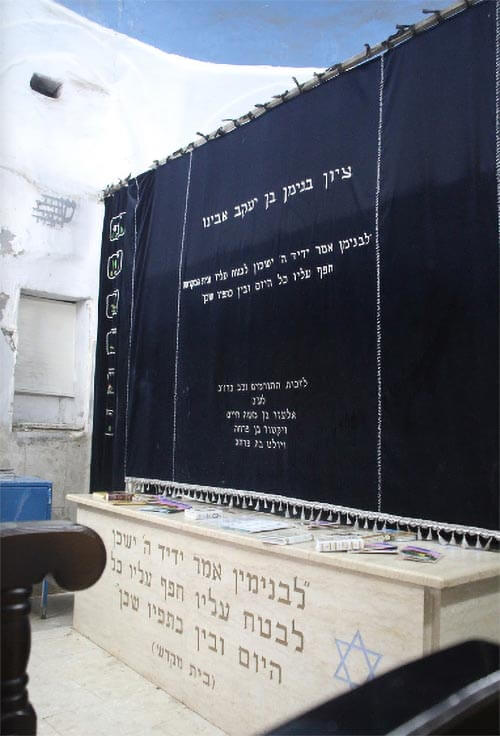 ציון בנימן בן יעקב אבינו
"לבנימן אמר ידיד ה' ישכון לבטח עליו
חפף עליו כל היום ובין כתפיו שכן
לזכות התורמים ונב ביתם
לע"נ
אליעזר בן
ויקטור בן פרחה
ויולט בת פרחה
"לבנימין אמר ידיד ה' ישכון
לבטח עליו חפף עליו כל
היום ובין כתפיו שכן"
(בית מקדש')